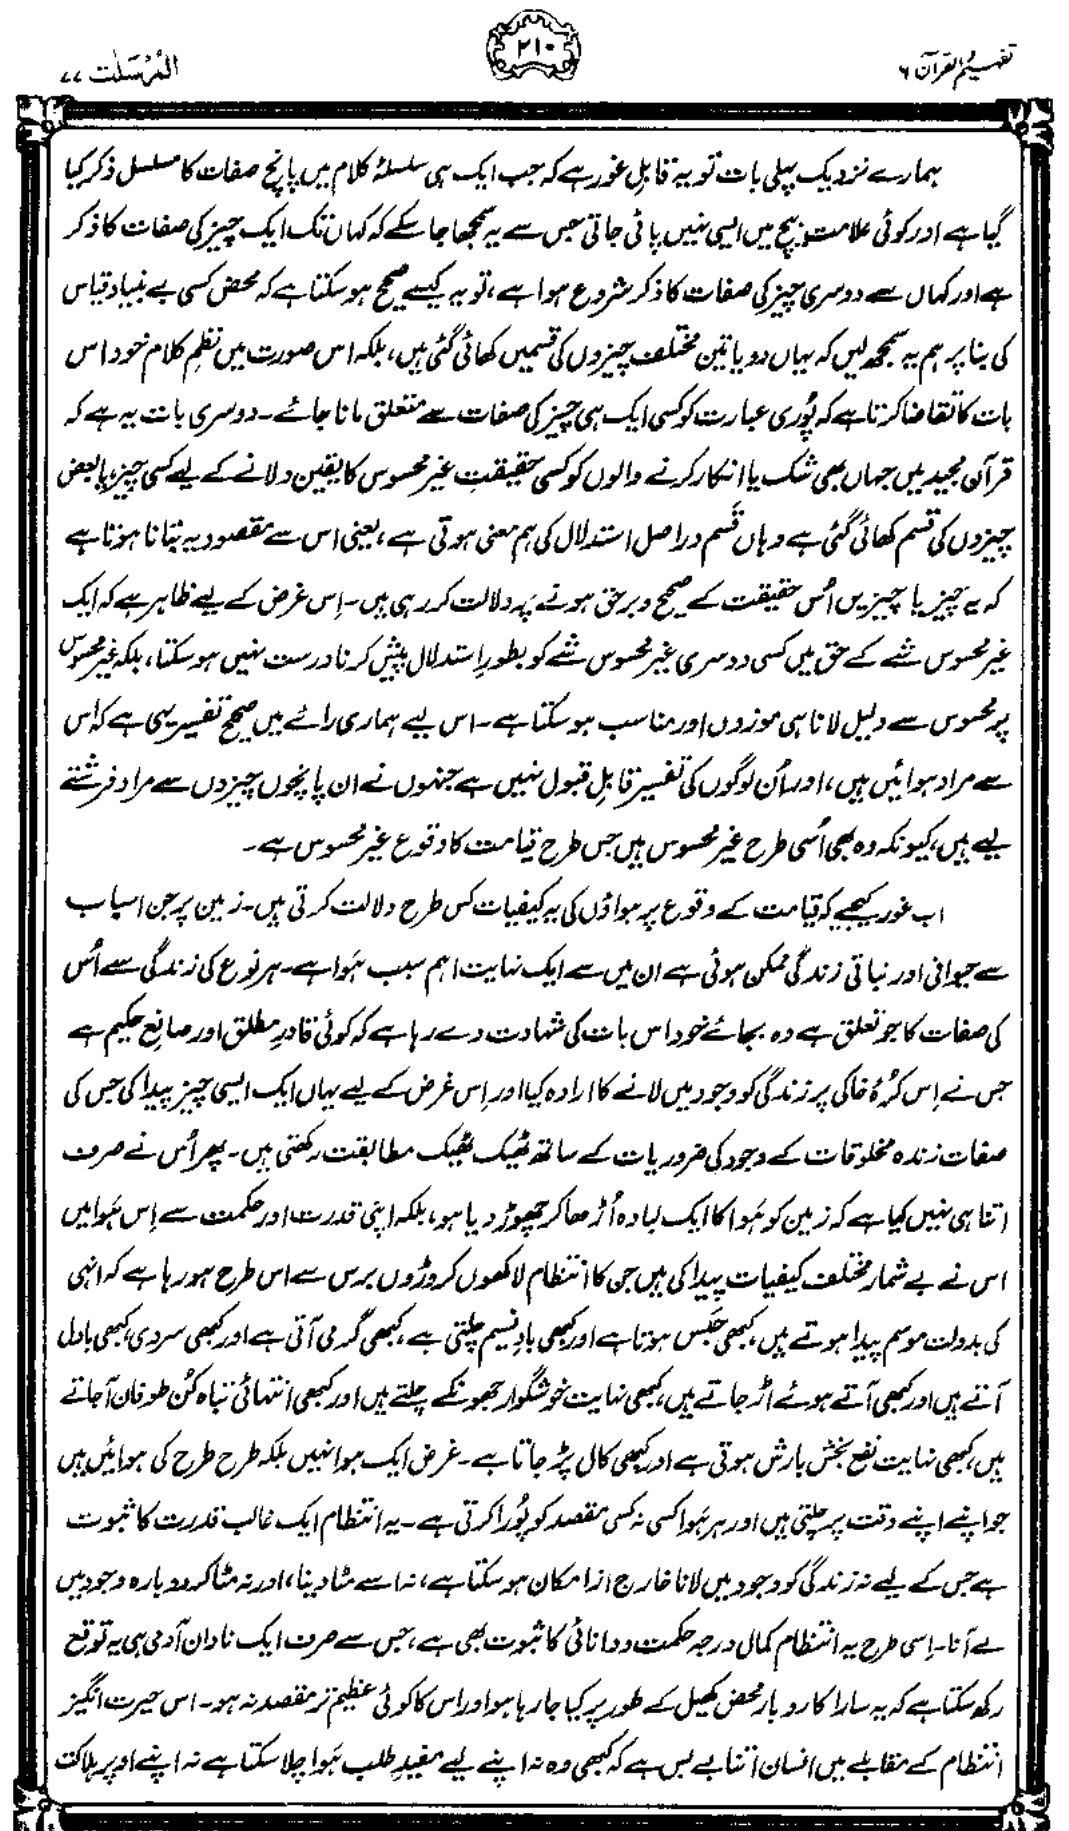 تفہیم القرآن ۶
۲۱۰
المُرْسَلٰت ۷۷
ہمارے نزدیک پہلی بات تو یہ قابلِ غور ہے کہ جب ایک ہی سلسلۂ کلام میں پانچ صفات کا مسلسل ذکر کیا
گیا ہے اور کوئی علامت بیچ میں ایسی نہیں پائی جاتی جس سے یہ سمجھا جا سکے کہ کہاں تک ایک چیز کی صفات کا ذکر
ہے اور کہاں سے دوسری چیز کی صفات کا ذکر شروع ہوا ہے، تو یہ کیسے صحیح ہو سکتا ہے کہ محض کسی بے بنیاد قیاس
کی بنا پر ہم یہ سمجھ لیں کہ یہاں دو یا تین مختلف چیزوں کی قسمیں کھائی گئی ہیں، بلکہ اس صورت میں نظمِ کلام خود اس
بات کا تقاضا کرتا ہے کہ پُوری عبارت کو کسی ایک ہی چیز کی صفات سے متعلق مانا جائے۔ دوسری بات یہ ہے کہ
قرآن مجید میں جہاں بھی شک یا انکار کرنے والوں کو کسی حقیقتِ غیر محسوس کا یقین دلانے کے لیے کسی چیز، یا بعض
چیزوں کی قسم کھائی گئی ہے وہاں قَسم دراصل استدلال کی ہم معنی ہوتی ہے، یعنی اس سے مقصود یہ بتانا ہوتا ہے
کہ یہ چیز یا چیزیں اُس حقیقت کے صحیح و برحق ہونے پہ دلالت کر رہی ہیں۔ اِس غرض کے لیے ظاہر ہے کہ ایک
غیر محسوس شے کے حق میں کسی دوسری غیر محسوس شے کو بطورِ استدلال پیش کرنا درست نہیں ہو سکتا، بلکہ غیر محسوس
پر محسوس سے دلیل لانا ہی موزوں اور مناسب ہو سکتا ہے۔ اس لیے ہماری رائے میں صحیح تفسیر یہی ہے کہ اس
سے مراد ہوائیں ہیں، اور اُن لوگوں کی تفسیر قابلِ قبول نہیں ہے جنہوں نے ان پانچوں چیزوں سے مراد فرشتے
لیے ہیں، کیونکہ وہ بھی اُسی طرح غیر محسوس ہیں جس طرح قیامت کا وقوع غیر محسوس ہے۔
اب غور کیجیے کہ قیامت کے وقوع پر ہواؤں کی یہ کیفیات کس طرح دلالت کرتی ہیں۔ زمین پر جن اسباب
سے حیوانی اور نباتی زندگی ممکن ہوئی ہے ان میں سے ایک نہایت اہم سبب ہَوا ہے۔ ہر نوع کی زندگی سے اُس
کی صفات کا جو تعلق ہے وہ بجائے خود اس بات کی شہادت دے رہا ہے کہ کوئی قادرِ مطلق اور صانعِ حکیم ہے
جس نے اِس کُرۂ خاکی پر زندگی کو وجود میں لانے کا ارادہ کیا اور اِس غرض کے لیے یہاں ایک ایسی چیز پیدا کی جس کی
صفات زندہ مخلوقات کے وجود کی ضروریات کے ساتھ ٹھیک ٹھیک مطابقت رکھتی ہیں۔ پھر اُس نے صرف
اتنا ہی نہیں کیا ہے کہ زمین کو ہَوا کا ایک لبادہ اُڑھا کر چھوڑ دیا ہو، بلکہ اپنی قدرت اور حکمت سے اِس ہَوا میں
اس نے بے شمار مختلف کیفیات پیدا کی ہیں جن کا انتظام لاکھوں کروڑوں برس سے اس طرح ہو رہا ہے کہ انہی
کی بدولت موسم پیدا ہوتے ہیں، کبھی حَبس ہوتا ہے اور کبھی بادِ نسیم چلتی ہے، کبھی گرمی آتی ہے اور کبھی سردی، کبھی بادل
آتے ہیں اور کبھی آتے ہوئے اڑ جاتے ہیں، کبھی نہایت خوشگوار جھونکے چلتے ہیں اور کبھی انتہائی تباہ کُن طوفان آجاتے
ہیں، کبھی نہایت نفع بخش بارش ہوتی ہے اور کبھی کال پڑ جاتا ہے۔ غرض ایک ہوا نہیں بلکہ طرح طرح کی ہوائیں ہیں
جو اپنے اپنے وقت پر چلتی ہیں اور ہر ہَوا کسی نہ کسی مقصد کو پُورا کرتی ہے۔ یہ انتظام ایک غالب قدرت کا ثبوت
ہے جس کے لیے نہ زندگی کو وجود میں لانا خارج از امکان ہو سکتا ہے، نہ اسے مٹا دینا، اور نہ مٹا کر دوبارہ وجود میں
لے آنا۔ اِسی طرح یہ انتظام کمال درجہ حکمت و دانائی کا ثبوت بھی ہے، جس سے صرف ایک نادان آدمی ہی یہ توقع
رکھ سکتا ہے کہ یہ سارا کاروبار محض کھیل کے طور پر کیا جا رہا ہو اور اس کا کوئی عظیم تر مقصد نہ ہو۔ اس حیرت انگیز
انتظام کے مقابلے میں انسان اتنا بے بس ہے کہ کبھی وہ نہ اپنے لیے مفیدِ طلب ہَوا چلا سکتا ہے نہ اپنے اوپر ہلاکت